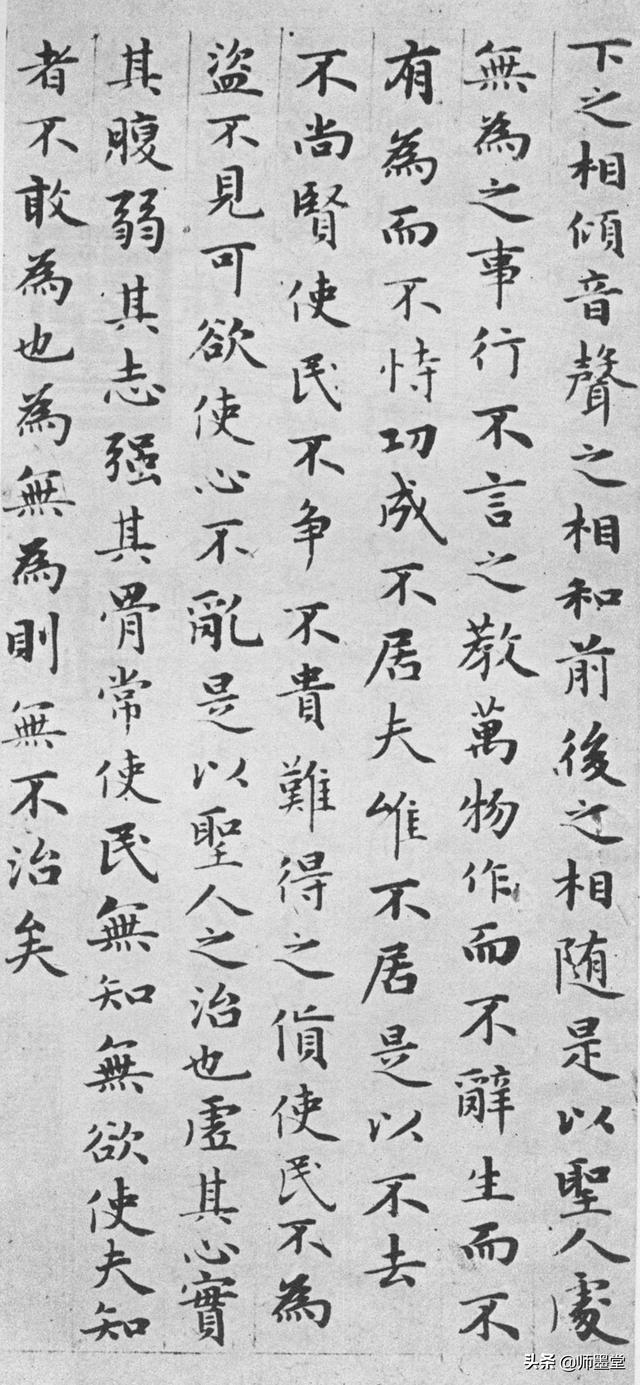 下之相傾音聲之相和前後之相随是以聖人處
無為之事行不言之教萬物作而不辭生而不
有為而不恃功成不居夫惟不居是以不去
不尚賢使民不争不貴難得之貨使民不為
盗不見可欲使心不亂是以聖人之治也虛其心實
其腹弱其志强其骨常使民無知無欲使夫知
者不敢為也為無為則無不治矣
头条 @师墨堂